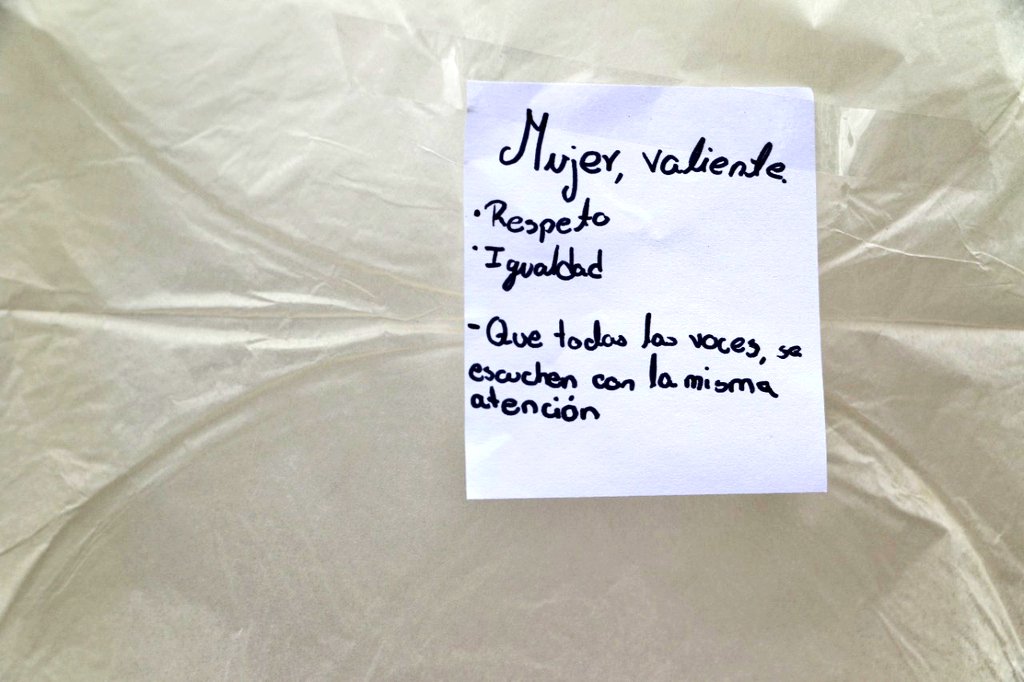 Mujer, valiente.
· Respeto
· Igualdad
- Que todas las voces, se
escuchen con la misma
atención